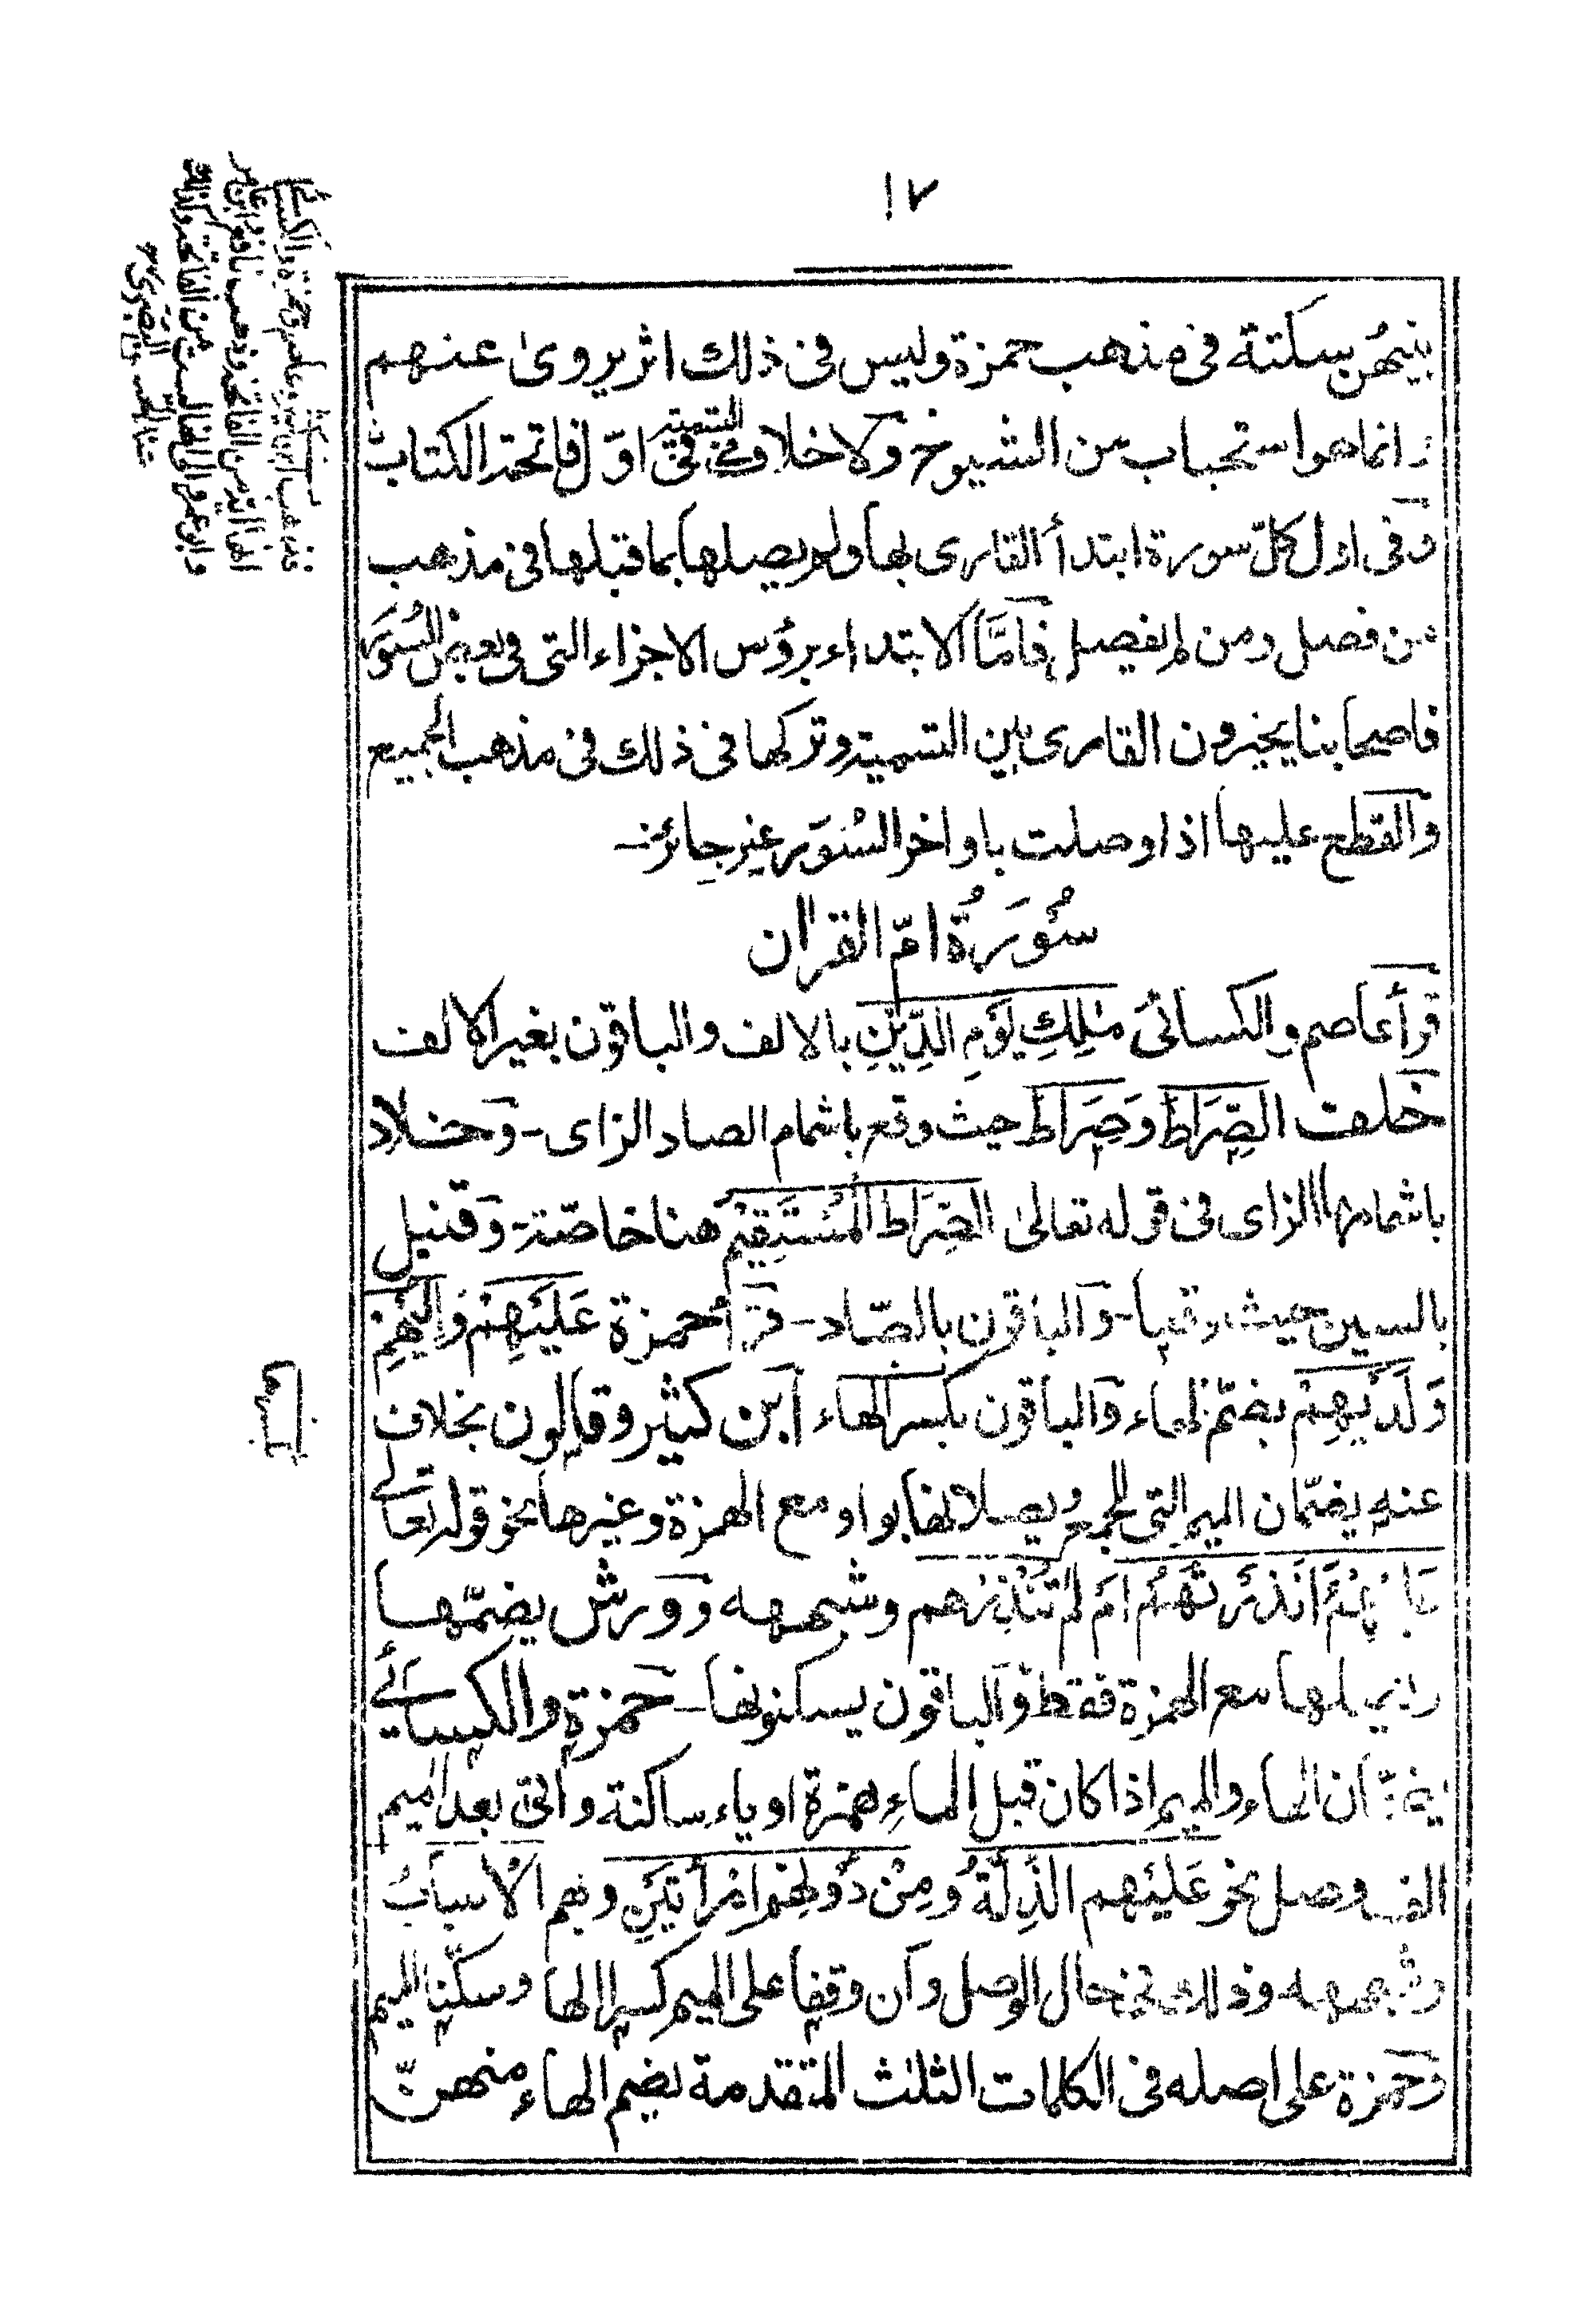 ١٧
بينهن بسكتة فى مذهب حمزة وليس فى ذلك اثر يروى عنهم
وانما هو استحباب من الشيوخ ولا خلاف فى التسمية فى اوّل فاتحة الكتاب
وفى اول كلّ سورة ابتدأ القارى بها ولم يصلها بما قبلها فى مذهب
من فصل ومن لم يفصل فامّا الابتداء برؤس الاجزاء التى فى بعض السُّوَر
فاصحابنا يخيرون القارى بين التسمية وتركها فى ذلك فى مذهب الجميع
والقطع عليها اذا وصلت باواخر السُّوَر غير جائز
سُورَةُ امّ القران
قرأ عاصم والكسائى مٰلِكِ يَوْمِ الدِّيْنِ بالالف والباقون بغير الالف
خلف الصِّرَاطَ وَصِرَاطَ حيث وقع باشمام الصاد الزاى - وخلاد
باشمامها الزاى فى قوله تعالىٰ الصِّرَاطَ الْمُسْتَقِيْمَ هنا خاصّة - وقنبل
بالسين حيث وقعا - والباقون بالصّاد - قرأ حمزة عَلَيْهِمْ وَاِلَيْهِمْ
وَلَدَيْهِمْ بضمّ الهاء والباقون بكسر الهاء ابن كثير وقالون بخلاف
عنه يضمّان الميم التى للجمع ويصلانها بواو مع الهمزة وغيرها نحو قوله تعالى
ءَاَنْذَرْتَهُمْ اَمْ لَمْ تُنْذِرْهم وشبهه وورش يضمّها
ويصلها مع الهمزة فقط والباقون يسكنونها - حمزة والكسائي
يضمّان الهاء والميم اذا كان قبل الهاءِ همزة او ياء ساكنة واتى بعد الميم
الف وصل نحو عَلَيْهم الذِّلَّةُ وَمِنْ دُوْنِهِم امْرَأَتَيْنِ وبهم الْاَسبَابُ
وشبهه وذلك فى حال الوصل وان وقفا على الميم كسرا الها وسكّنا الميم
وحمزة على اصله فى الكلمات الثلٰث المتقدمة يضم الهاء منهن